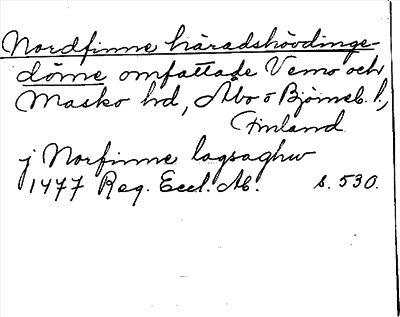 Nordfinne häradshövdinge-
döme omfattade Vemo och
Masko hd, Åbo o Björneb. l.,
Finland.
j Norfinne lagsaghw
1477 Reg. Eccl. Ab. s. 530.